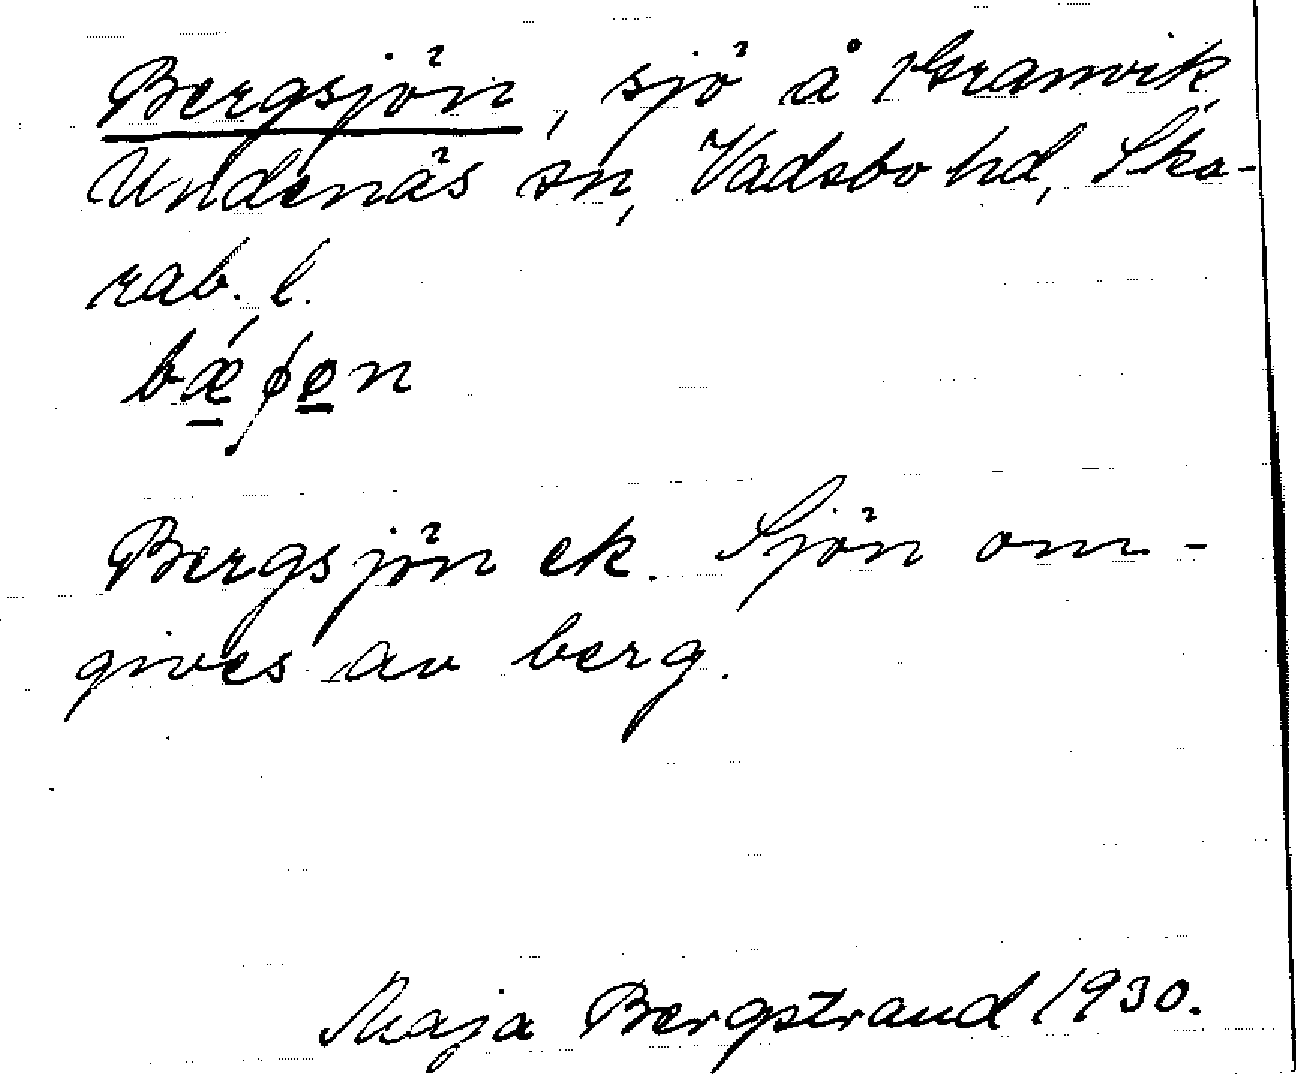 Bergsjön, sjö å Granvik
Undenäs sn, Vadsbo hd, Ska-
rab. l.
Bergsjön ek. Sjön om-
gives av berg.
Maja Bergstrand 1930.